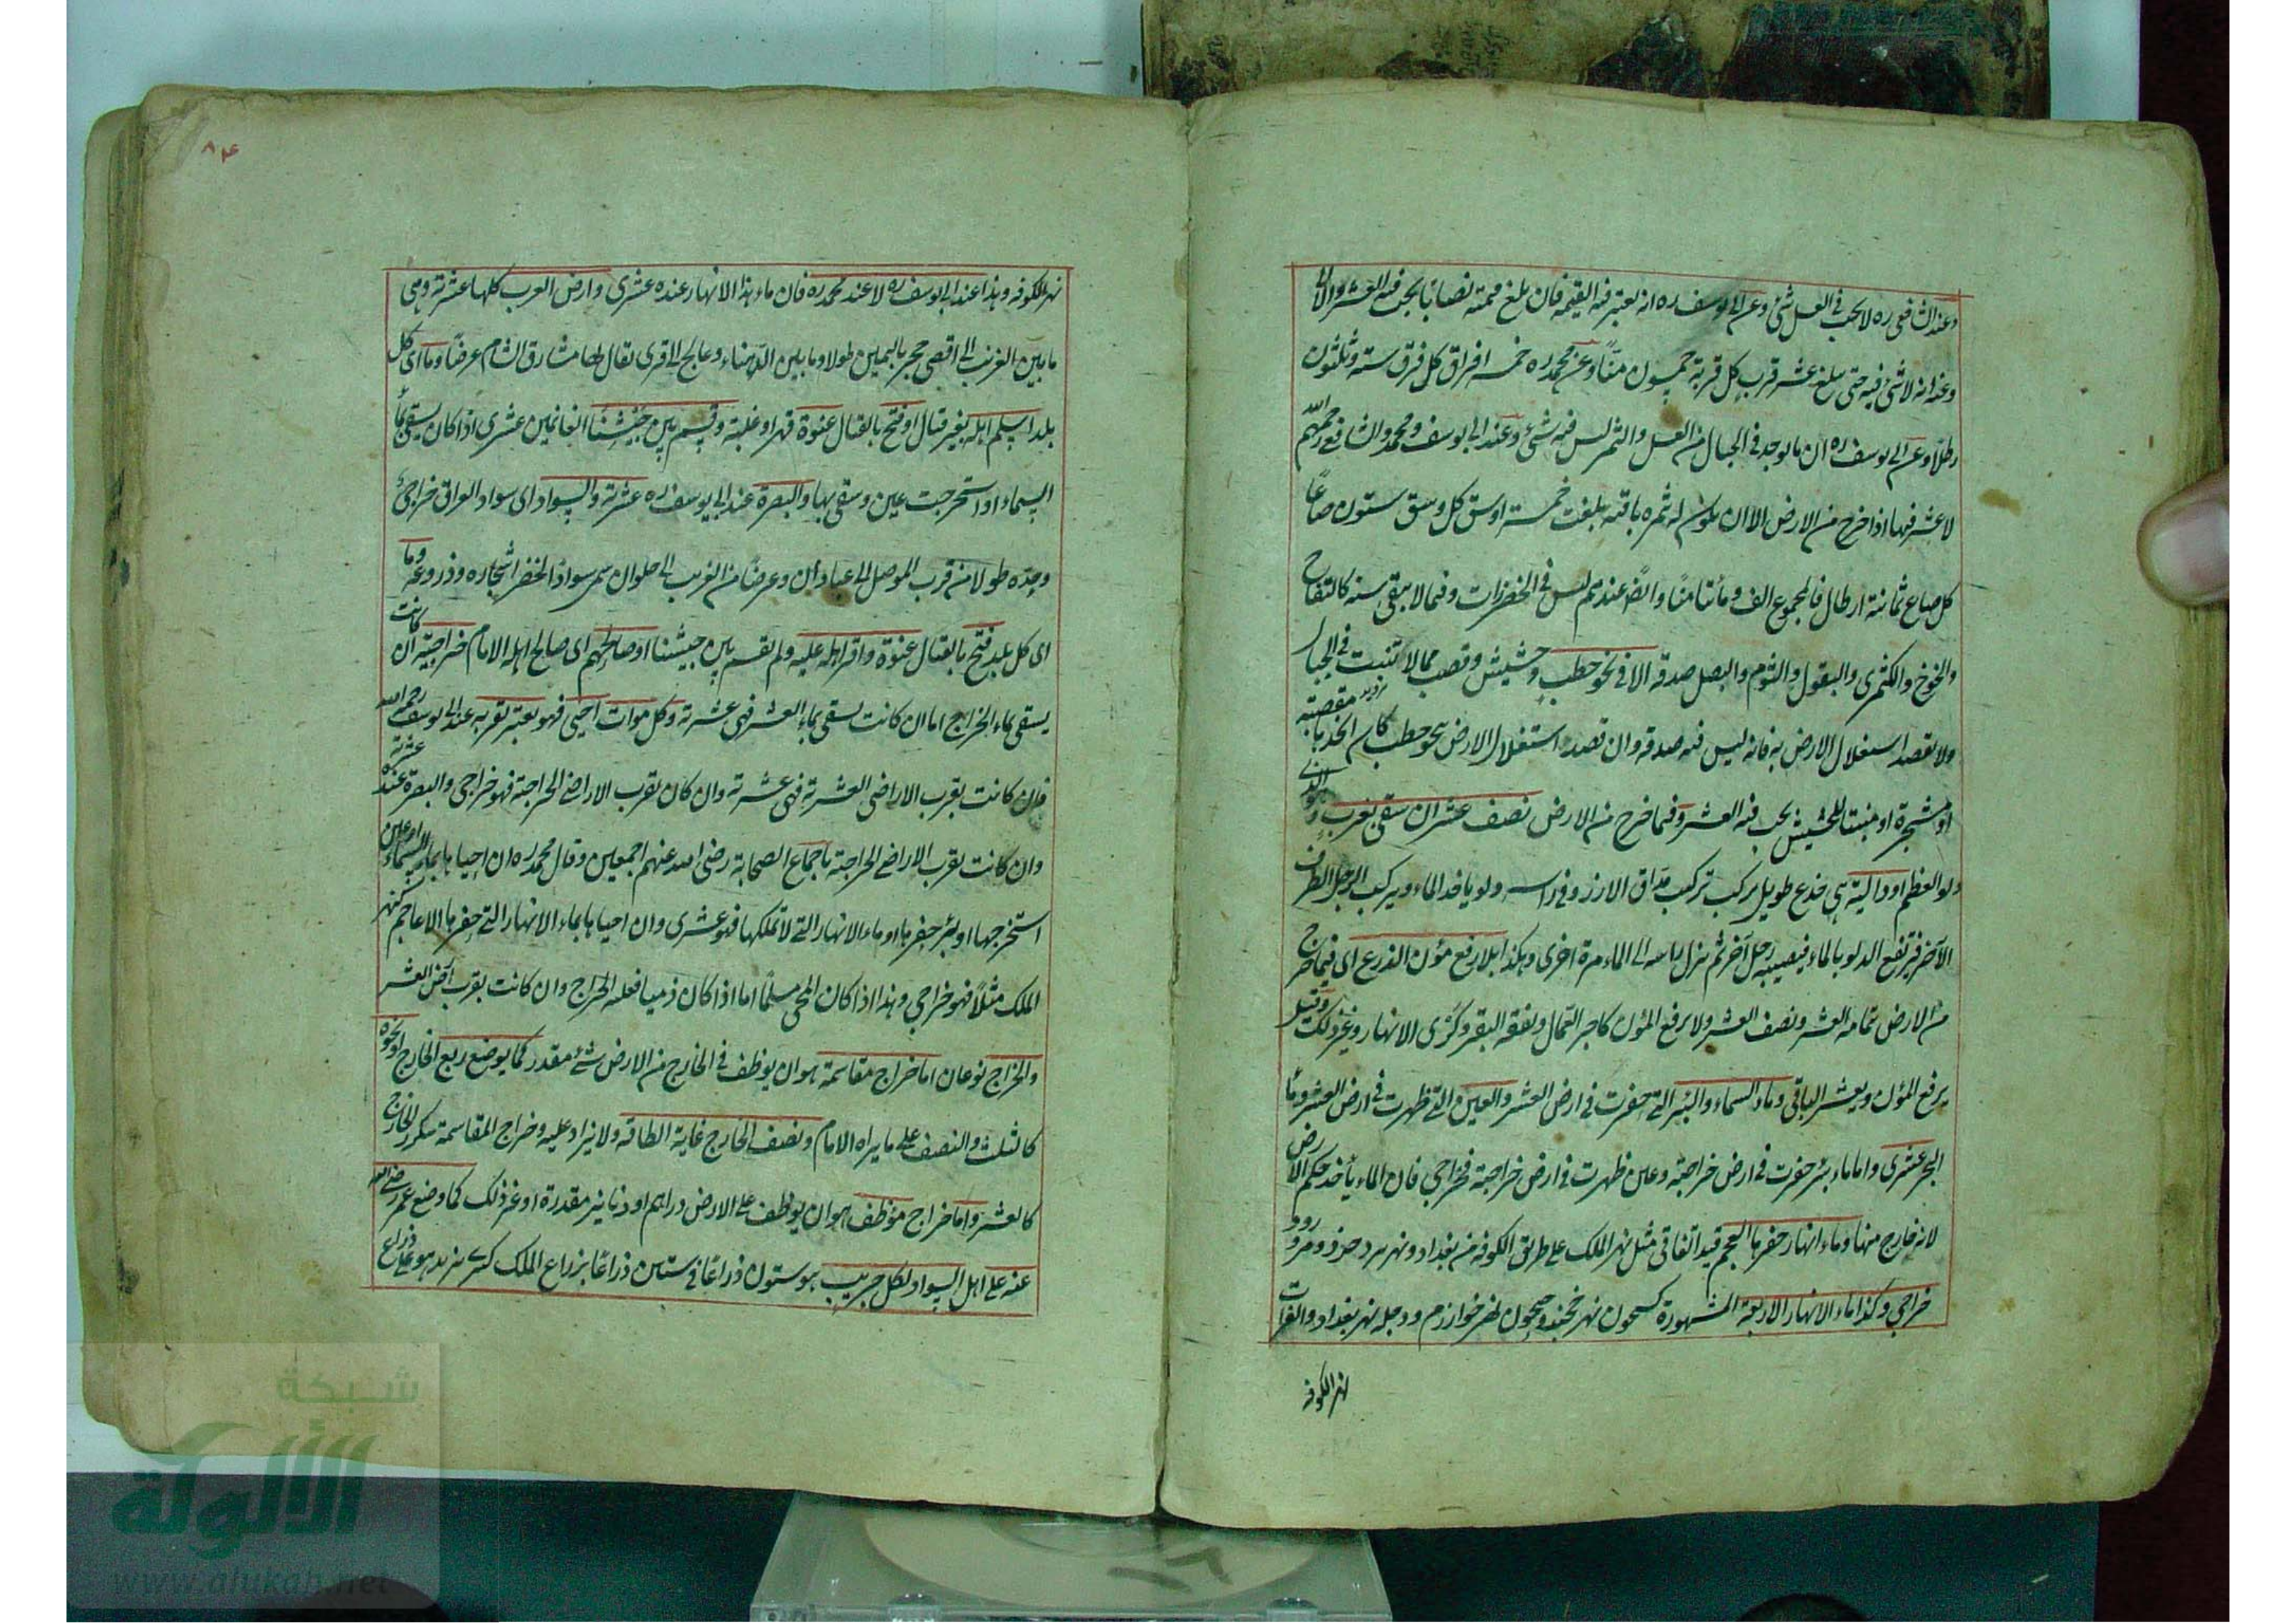 وعند الشافعي ره لا يجب في العسل شئ وعن ابي يوسف ره انه يعتبر فيه القيمة فان بلغ قيمته نصابا يجب فيه العشر والا لا
وعنه انه لا شئ فيه حتى يبلغ عشر قرب كل قربة خمسون منّا وعن محمد ره خمسة افراق كل فرق ستة وثلثون
رطلا وعن ابي يوسف ره ان ما يوجد في الجبال من العسل والثمر ليس فيه شئ وعند ابي يوسف ومحمد والشافعي رحمهم الله
لا عشر فيها اذا خرج من الارض الا ان يكون له ثمره باقية بلغت خمسة اوسق كل وسق ستون صاعا
كل صاع ثمانية ارطال فالمجموع الف ومأتا منّا وايضا عندهم ليس في الخضرزات وفيما لا يبقى سنة كالتفاح
والخوخ والكثمرى والبقول والثوم والبصل صدقة الا في نحو حطب وحشيش وقصب مما لا تنبت في الجبال
ولا يقصد استغلال الارض به فانه ليس فيه صدقة وان قصد استغلال الارض بنحو حطب كان اتخذها مقصبة
او مشجرة او منبتا للحشيش يجب فيه العشر وفيما خرج من الارض نصف عشر ان سقى بغرب وهو الذى
دلو العظم او دالية هي جذع طويل يركب تركيب مداق الارز وفي راسه دلو ياخذ الماء ويركب الرجل الطرف
الآخر فيرتفع الدلو بالماء فيصيبه رجل آخر ثم ينزل راسه الى الماء مرة اخرى وهكذا بلا رفع مؤن الذرع اى فيما خرج
من الارض تمامه العشر ونصف العشر ولا يرفع المؤن كاجر العمال ونفقة البقر وكرى الانهار وغير ذلك وقيل
يرفع المؤن ويعشر الباقى وماء السماء والبئر التى حفرت في ارض العشر والعين التى ظهرت في ارض العشر وماء
البحر عشرى واما ماء بئر حفرت في ارض خراجية وعين ظهرت في ارض خراجية فخراجي فان الماء يأخذ حكم الارض
لانه خارج منها وماء انهار حفرها العجم قيد اتفاقي مثل نهر الملك على طريق الكوفة من بغداد ونهر يزدجرد ومرورود
خراجي وكذا ماء الانهار الاربعة المشهورة كسيحون نهر خجند وجيحون نهر خوارزم ودجله نهر بغداد والفرات
نهر الكوفة
۸۴
نهر الكوفه وهذا عند ابي يوسف ره لا عند محمد ره فان ماء هذا الانهار عنده عشرى وارض العرب كلها عشرية وهي
ما بين العذيب الى اقصى حجر باليمن طولا وما بين الدهناء وعالج الى قرى يقال لها مشارق الشام عرضا وما اى كل
بلد اسلم اهله بغير قتال او فتح بالقتال عنوة قهرا وغلبة وقسم بين جيشنا الغانمين عشرى اذا كان يسقى بماء
السماء او استخرجت عين وسقى بها والبصرة عند ابي يوسف ره عشرية والسواد اى سواد العراق خراجي
وحده طولا من قرب الموصل الى عبادان وعرضا من العذيب الى حلوان سمى سوادا لخضر اشجاره وذروعه وما
اى كل بلد فتح بالقتال عنوة واقر اهله عليه ولم يقسم بين جيشنا او صالحهم اى صالح اهله الامام خراجية ان كانت
يسقى بماء الخراج اما ان كانت يسقى بماء العشر فهى عشرية وكل موات احيى فهو يعتبر بقربه عند ابي يوسف رحمه الله
فان كانت بقرب الاراضى العشرية فهى عشرية وان كان بقرب الاراضى الخراجية فهو خراجي والبصرة عنده عشرية
وان كانت بقرب الاراضى الخراجية باجماع الصحابة رضى الله عنهم اجمعين وقال محمد ره ان احياها بماء السماء او عين
استخرجها او بئر حفرها او ماء الانهار التى لا تملكها فهو عشرى وان احياها بماء الانهار التى حفرها الاعاجم كنهر
الملك مثلا فهو خراجي وهذا اذا كان المحى مسلما اما اذا كان ذميا فعليه الخراج وان كانت بقرب ارض العشر
والخراج نوعان اما خراج مقاسمة هو ان يوظف في الخارج من الارض شئ مقدر كما يوضع ربع الخارج او نحوه
كالثلث والنصف على ما يراه الامام ونصف الخارج غاية الطاقة ولا يزاد عليه وخراج المقاسمة متكرر الخارج
كالعشر واما خراج موظف هو ان يوظف على الارض دراهم او دنانير مقدرة او غير ذلك كما وضع عمر رضى الله
عنه على اهل السواد لكل جريب هو ستون ذراعا في ستين ذراعا بزراع الملك كسرى يزيد هو على ذراع